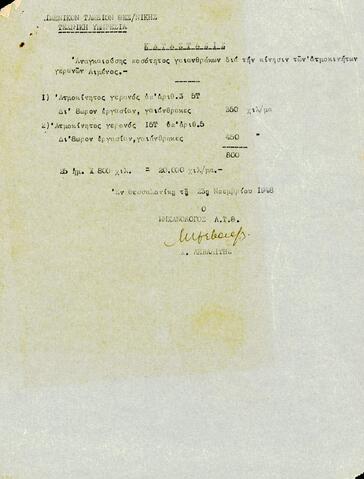 ΛΙΜΕΝΙΚΟΝ ΤΑΜΕΙΟΝ ΘΕΣ/ΝΙΚΗΣ
ΤΕΧΝΙΚΗ ΥΠΗΡΕΣΙΑ
Κατάστασις
Ἀναγκαιούσης ποσότητος γαιανθράκων διά τήν κίνησιν τῶν ἀτμοκινήτων
γερανῶν Λιμένος.-
1) Ἀτμοκίνητος γερανός ὑπ'ἀριθ.3 5Τ
Δι' 8ωρον ἐργασίαν, γαιάνθρακες 350 χιλ/μα
2) Ἀτμοκίνητος γερανός 15Τ ὑπ'ἀριθ.5
Δι'8ωρον ἐργασίαν, γαιάνθρακες 450 "
800
25 ἡμ. Χ 800 χιλ. = 20.000 χιλ/μα.-
Ἐν Θεσσαλονίκῃ τῇ 23ῃ Νοεμβρίου 1948
Ο
ΜΗΧΑΝΟΛΟΓΟΣ Λ.Τ.Θ.